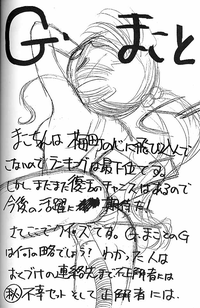 G・まこと
まこちんは 梅田の心に飛び込んで
ないのでランキングは最下位です。
しかしまだまだ復活のチャンスはあるので
今後の活躍に期待だ!
さてここでクイズです。G・まことのG
は何の略でしょう? わかった人は
おてつけの連絡先まで 不正解者には
㊙不幸セット そして 正解者には、